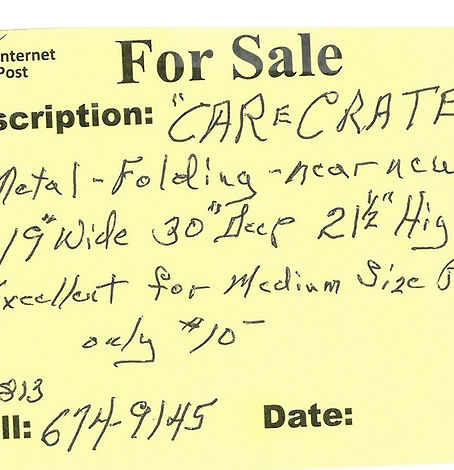 nternet
Post
For Sale
scription: "CAReCRATE
Metal-Folding-near new
19" Wide 30" Deep 21½" Hig
xcellent for Medium Size
only $10-
813
ll: 674-9145 Date: